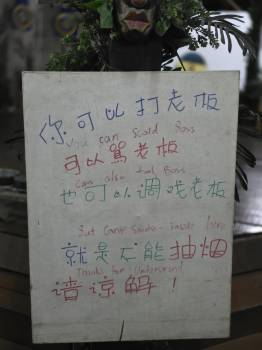 你可以打老板
You can Scold Boss
可以駡老板
Can also Boss
也可以调戏老板
But Can't Smoke inside here
就是不能抽烟
Thanks for Understand
请谅解！